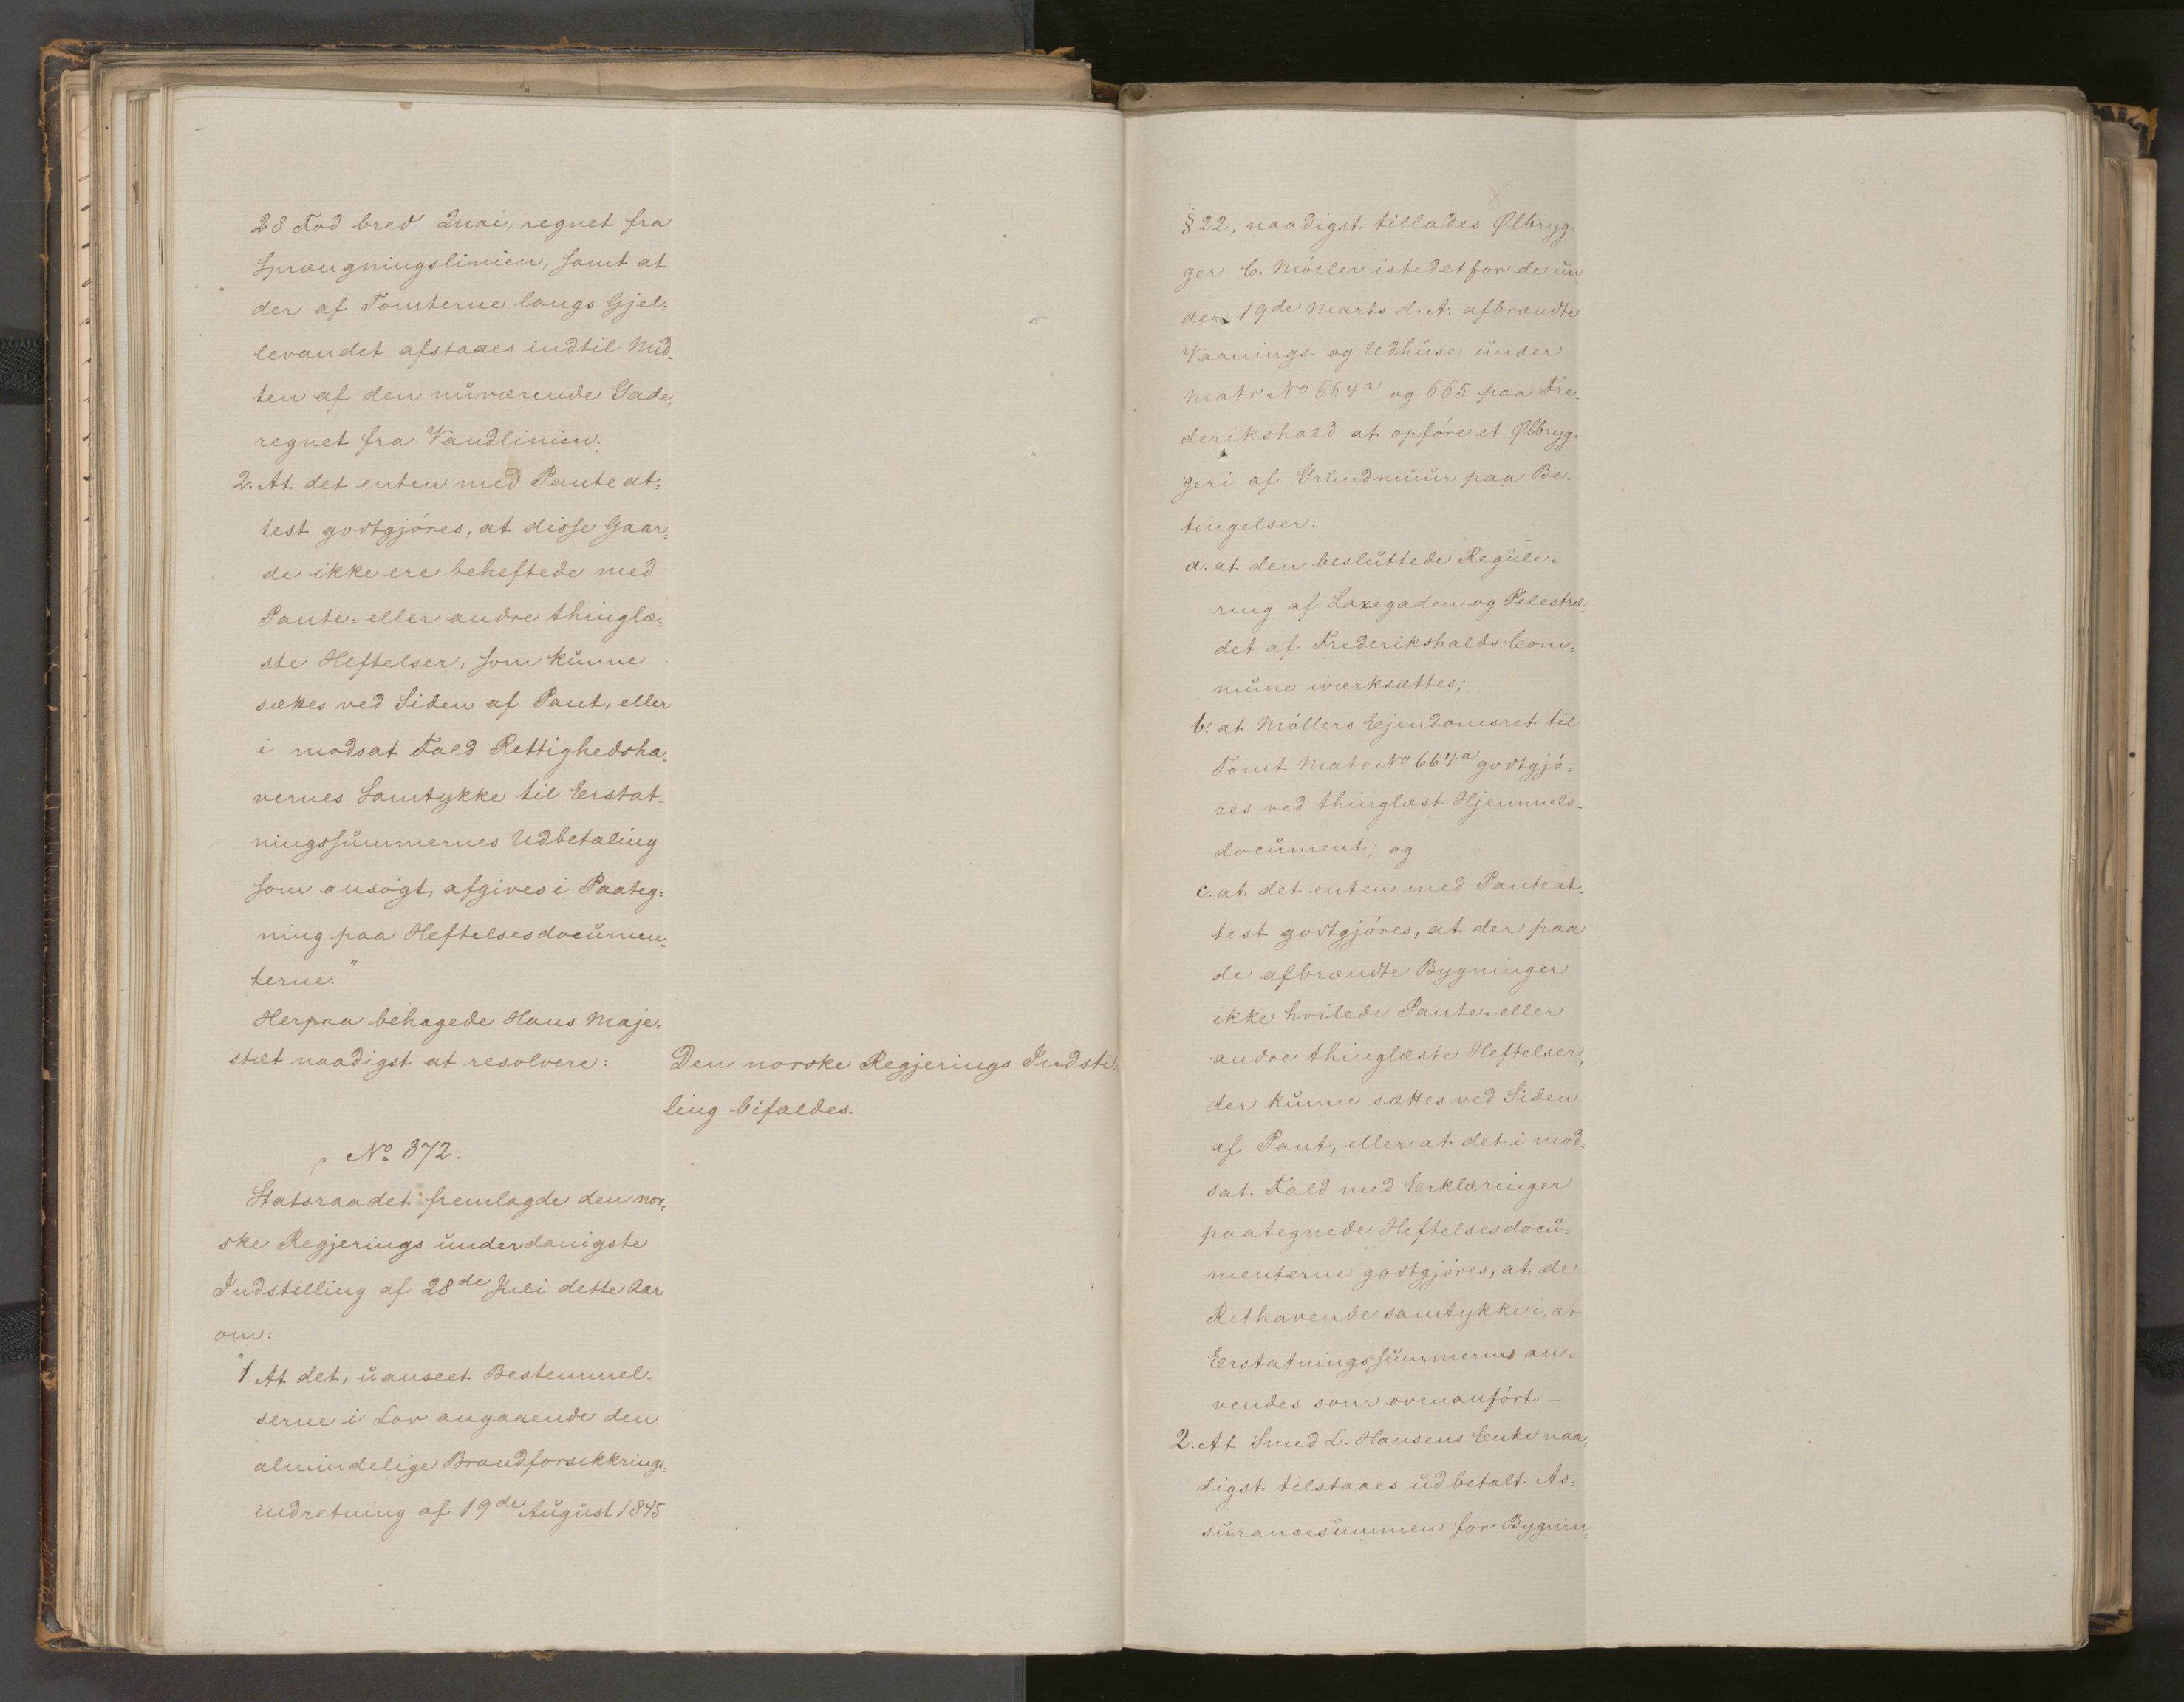 28 Fod bred Quai, regnet fra
Sprængningslinien, samt at
der af Tomterne langs Gjel-
levandet afstaaes indtil Mid-
ten af den nuværende Gade,
regnet fra Vandlinien;
2. At det enten med Panteat-
test godtgjöres, at disse Gaar-
de ikke ere beheftede med
Pante- eller andre thinglæ-
ste Heftelser, som kunne
sættes ved Siden af Pant, eller
i modsat Fald Rettighedsha-
vernes Samtykke til Erstat-
ningssummernes Udbetaling
som ansögt, afgives i Paateg-
ning paa Heftelsesdocumen-
terne."
Herpaa behagede Hans Maje-
stæt naadigst at resolvere:
Den norske Regjerings Indstil-
ling bifaldes.
No 872.
Statsraadet fremlagde den nor-
ske Regjerings underdanigste
Indstilling af 28de Juli dette Aar
om:
"1. At det, uanseet Bestemmel-
serne i Lov angaaende den
almindelige Brandforsikkrings-
indretning af 19de August 1845
§ 22, naadigst tillades Ølbryg-
ger C. Möller istedetfor de un-
der 19de Marts d. A. afbrændte
Vaanings- og Udhuse under
Matr No 664a og 665 paa Fre-
derikshald at opföre et Ølbryg-
geri af Grundmuur paa Be-
tingelser:
a. at den besluttede Regule-
ring af Laxegaden og Pilestræ-
det af Frederikshalds Com-
mune iværksættes;
b. at Möllers Ejendomsret til
Tomt Matr No 664a godtgjö-
res ved thinglæst Hjemmels-
document; og
c. at det enten med Panteat-
test godtgjöres, at der paa
de afbrændte Bygninger
ikke hvilede Pante- eller
andre thinglæste Heftelser,
der kunne sættes ved Siden
af Pant, eller at det i mod-
sat Fald med Erklæringer
paategnede Heftelsesdocu-
menterne godtgjöres, at de
Rethavende samtykke i, at
Erstatningssummerne an-
vendes som ovenanfört. —
2. At Smed L. Hansens Enke naa-
digst tilstaaes udbetalt As-
surancesummen for Bygnin-